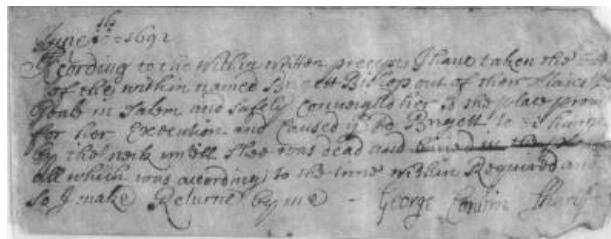 June 10th - 1692
According to the Within written precept I have taken the body
of the within named Brigett Bishop out of their Majesties
Goale in Salem and Safely Conveighd her to the place provided
for her Execution and Caused ye sd Brigett to be hanged
by the neck untill Shee was dead and buried in the place
all which was according to the time within Required and
So I make Returne by me - George Corwin Sheriff